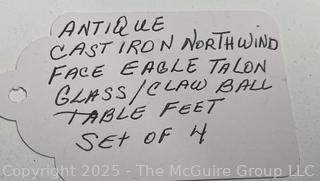 ANTIQUE
CAST IRON NORTHWIND
FACE EAGLE TALON
GLASS/CLAW BALL
TABLE FEET
SET OF 4
Copyright 2025 - The McGuire Group LLC